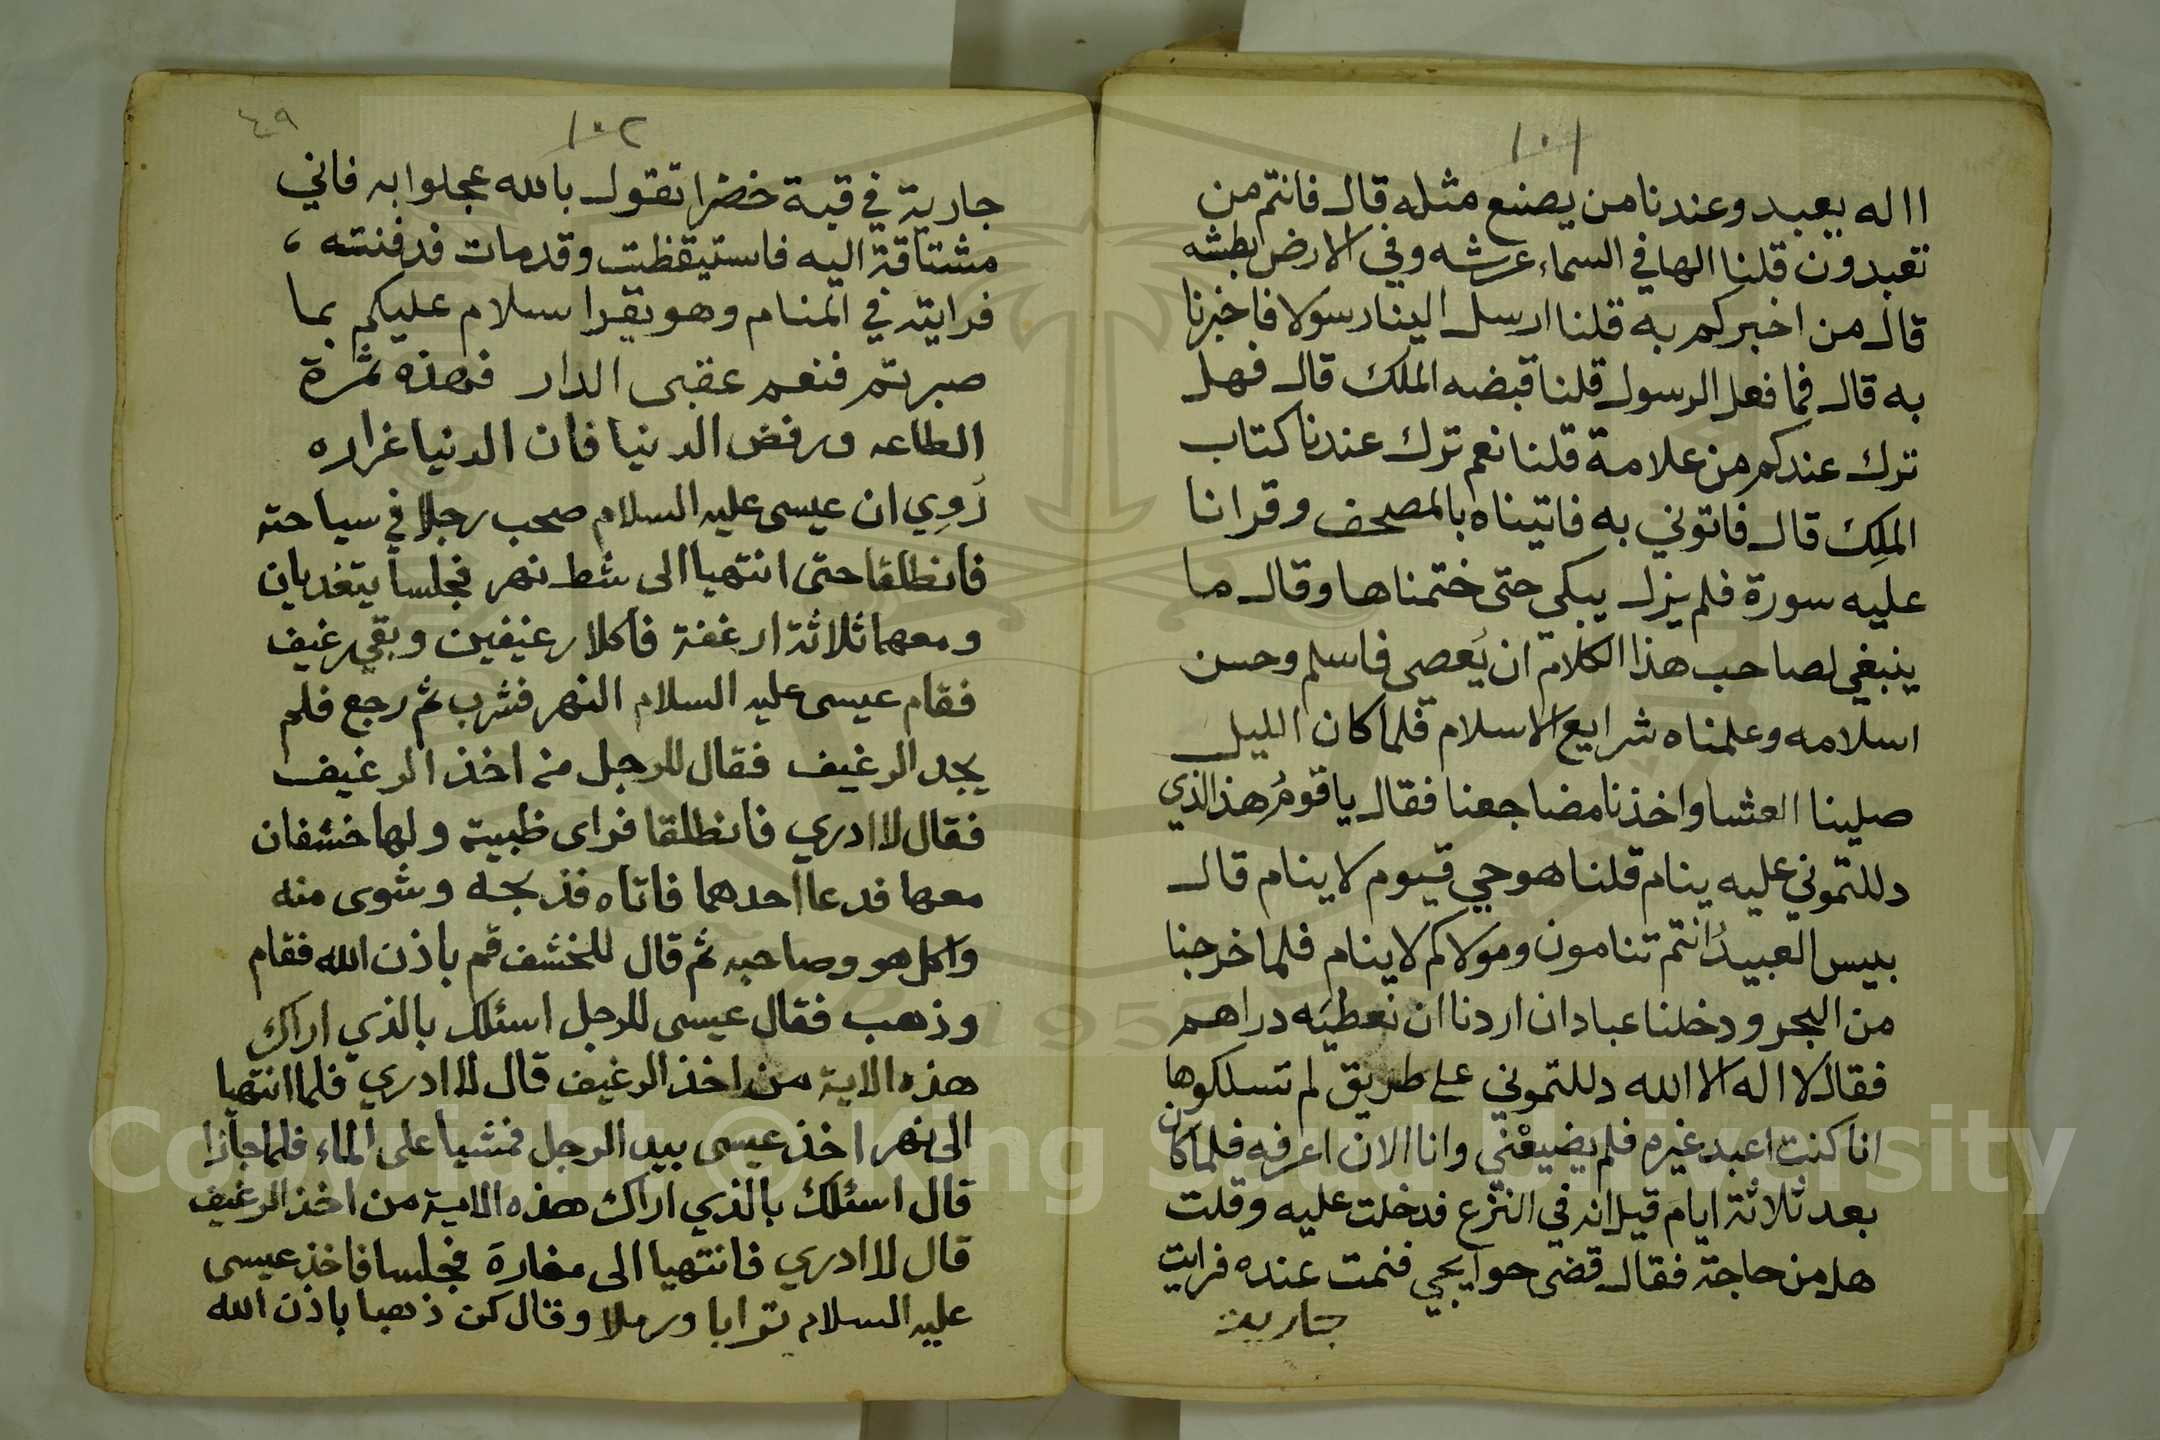 ١٠١
االه يعبد وعندنا من يصنع مثله قال فانتم من
تعبدون قلنا الها في السماء عرشه وفي الارض بطشه
قال من اخبركم به قلنا ارسل الينا رسولا فاخبرنا
به قال فما فعل الرسول قلنا قبضه الملك قال فهل
ترك عندكم من علامة قلنا نعم ترك عندنا كتاب
الملِك قال فاتوني به فاتيناه بالمصحف وقرانا
عليه سورة فلم يزل يبكي حتى ختمناها وقال ما
ينبغي لصاحب هذا الكلام ان يُعصى فاسلم وحسن
اسلامه وعلمناه شرايع الاسلام فلما كان الليل
صلينا العشا واخذنا مضاجعنا فقال ياقومُ هذا الذي
دللتموني عليه ينام قلنا هو حي قيوم لا ينام قال
بيس العبيدُ انتم تنامون ومولاكم لا ينام فلما خرجنا
من البحر ودخلنا عبادان اردنا ان نعطيَه دراهم
فقال لا اله الا الله دللتموني على طريق لم تسلكوها
انا كنت اعبد غيره فلم يضيعْني وانا الان اعرفه فلما كان
بعد ثلاثة ايام قيل انه في النزع فدخلت عليه وقلت
هل من حاجة فقال قضى حوايجي فنمت عنده فرايت
جارية
٤٩
١٠٢
جارية في قبة خضرا تقول بالله عجلوا به فاني
مشتاقة اليه فاستيقظت وقد مات فدفنته ،
فرايته في المنام وهو يقرا سلام عليكم بما
صبرتم فنعم عقبى الدار فهذه ثمرة
الطاعه ورفض الدنيا فان الدنيا غراره
رُوِي ان عيسى عليه السلام صحب رجلا في سياحته
فانطلقا حتى انتهيا الى شط نهر فجلسا يتغديان
ومعهما ثلاثة ارغفة فاكلا رغيفين وبقي رغيف
فقام عيسى عليه السلام النهر فشرب ثم رجع فلم
يجد الرغيف فقال للرجل من اخذ الرغيف
فقال لا ادري فانطلقا فراى ظبية ولها خشفان
معها فدعا احدهما فاتاه فذبحه وشوى منه
واكل هو وصاحبه ثم قال للخشف قم باذن الله فقام
وذهب فقال عيسى للرجل اسئلك بالذي اراك
هذه الاية من اخذ الرغيف قال لا ادري فلما انتهيا
الى نهر اخذ عيسى بيد الرجل فمشيا على الماء فلما جازا
قال اسئلك بالذي اراك هذه الاية من اخذ الرغيف
قال لا ادري فانتهيا الى مغارة فجلسا فاخذ عيسى
عليه السلام ترابا ورملا وقال كن ذهبا باذن الله
Copyright © King Saud University
1957